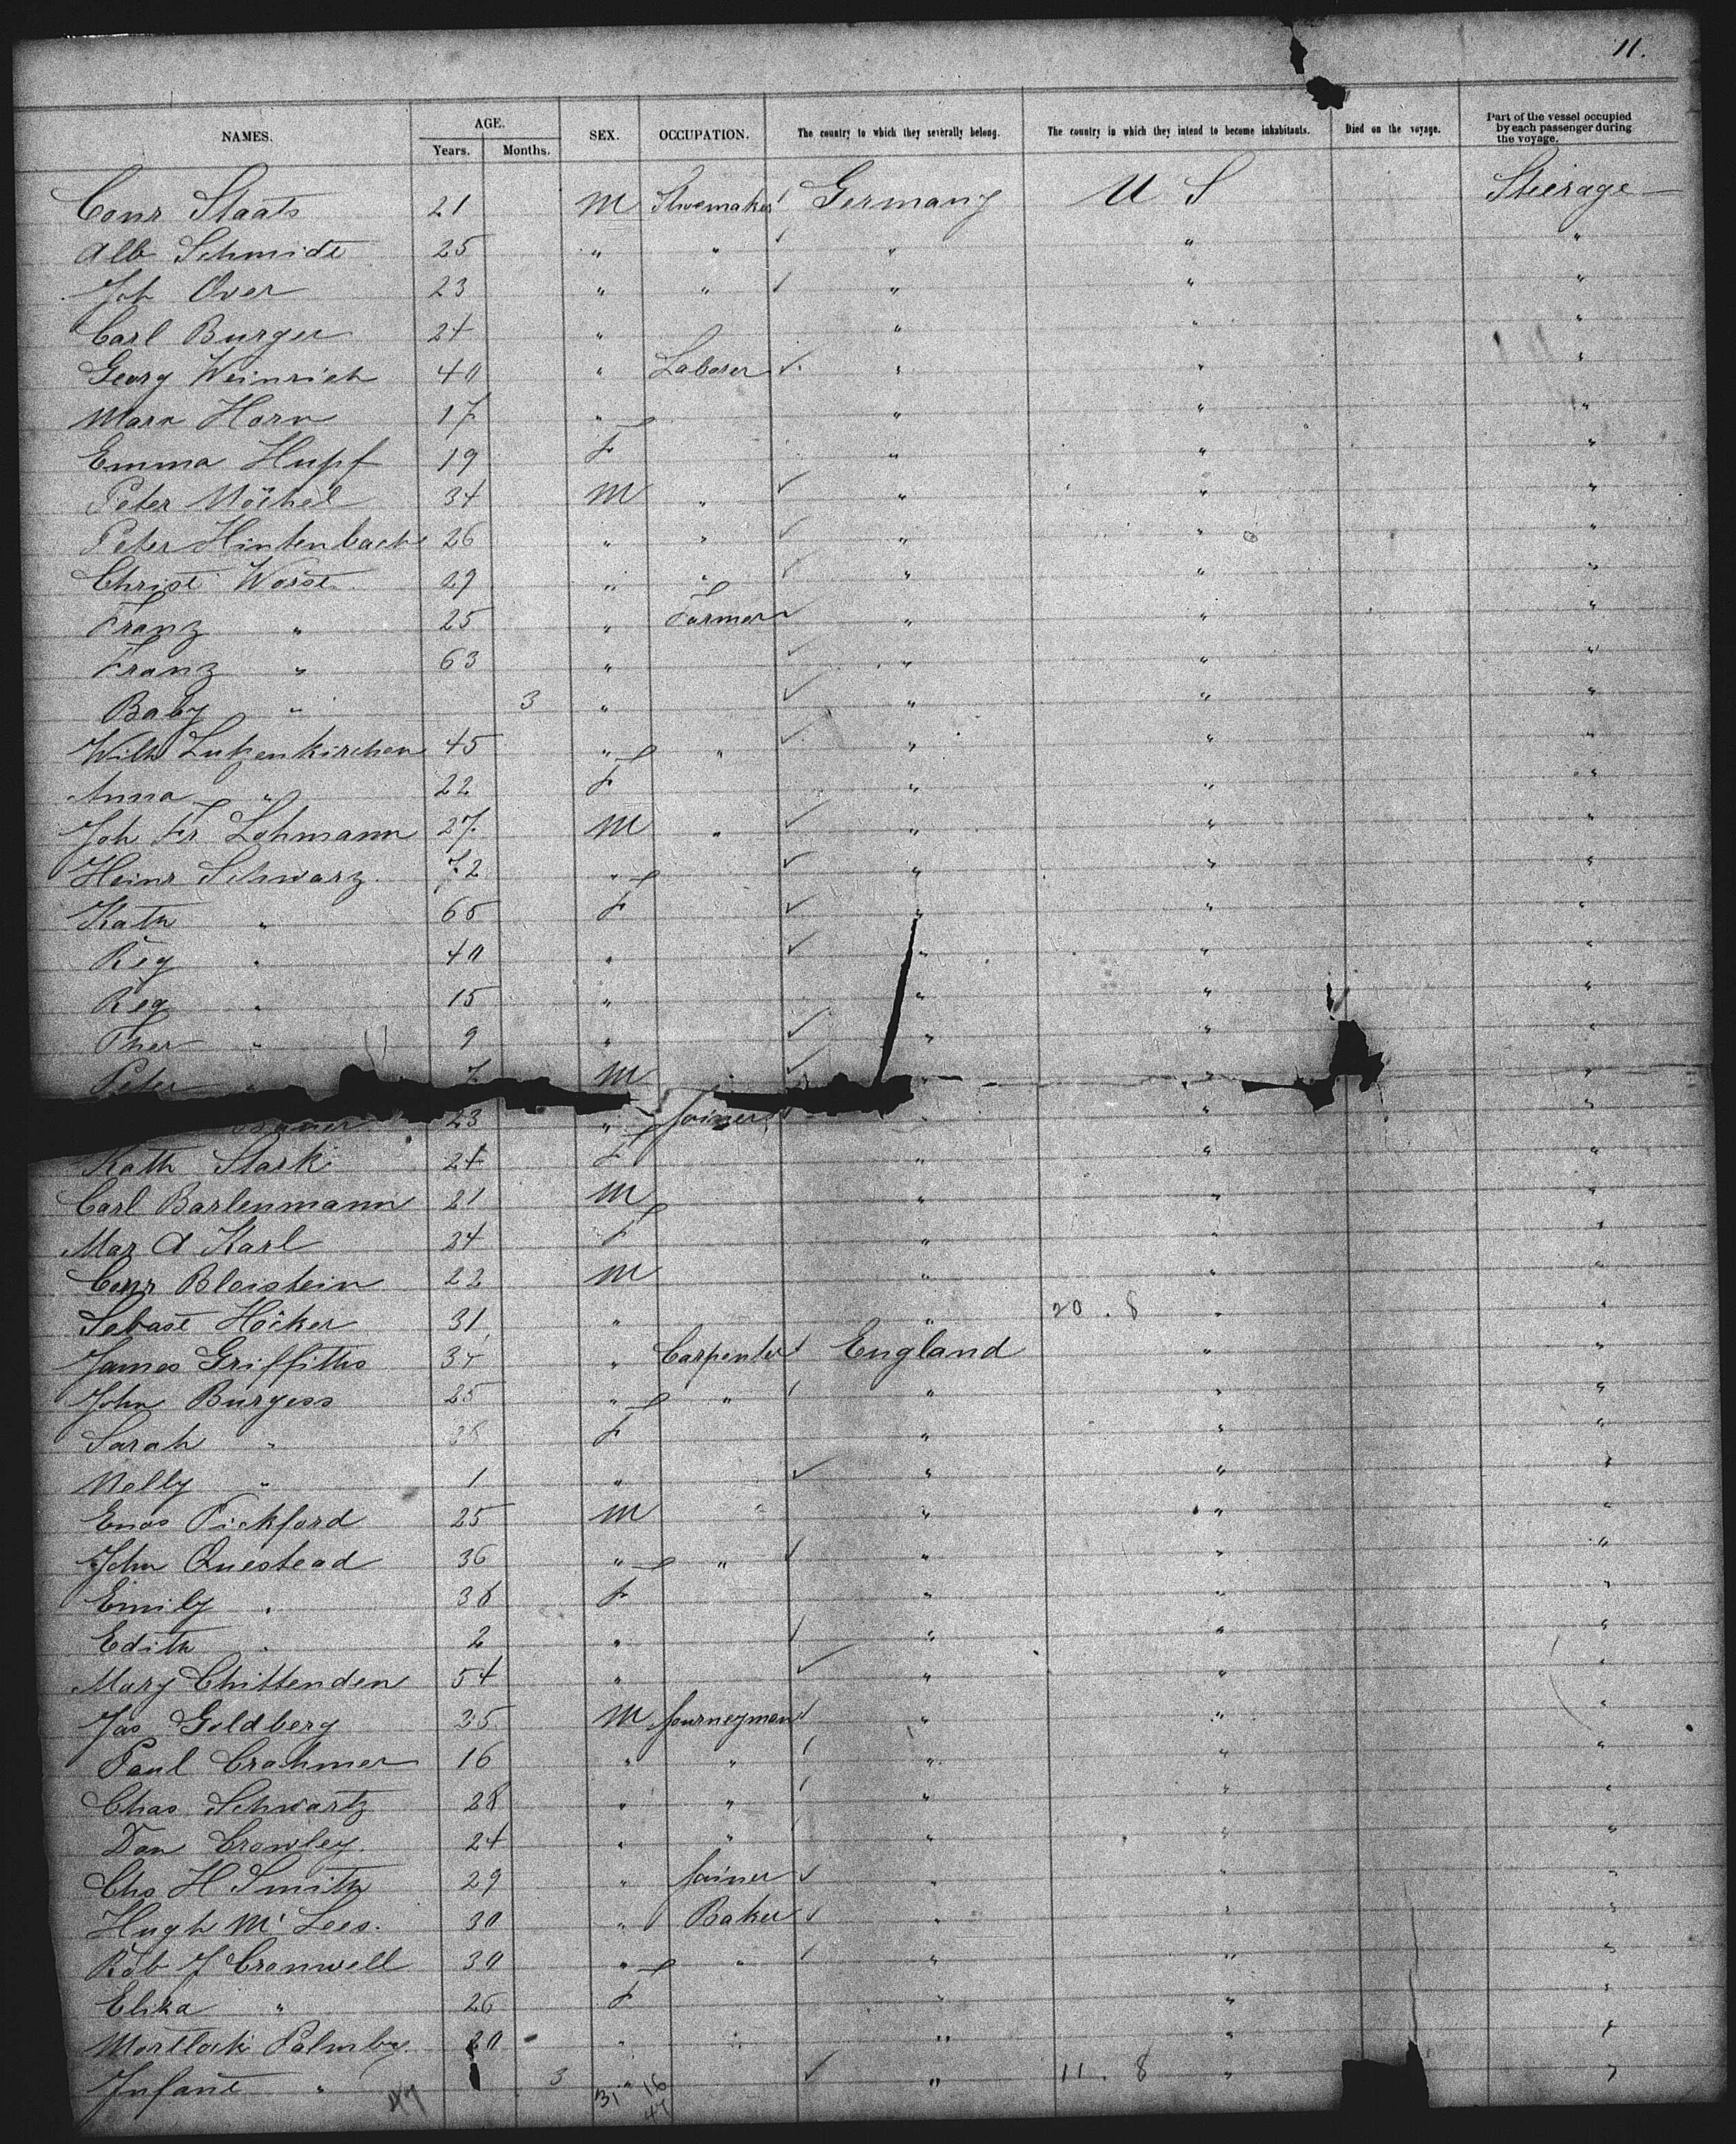 11.
NAMES. AGE. SEX. OCCUPATION. The country to which they severally belong. The country in which they intend to become inhabitants. Died on the voyage. Part of the vessel occupied by each passenger during the voyage.
Years. Months.
Conr Staats 21 M Shoemaker Germany U S Steerage
Alb Schmidt 25 " " " " "
Joh Over 23 " " " " "
Carl Burger 24 " " " "
Georg Weinrich 40 " Laborer " " "
Mara Horn 17 " " " "
Emma Hupf 19 F " " "
Peter 34 M " " " "
Peter Hintenbach 26 " " " " "
Christ Worst 29 " " " " "
Franz " 25 " Farmer " " "
Franz " 63 " " " "
Baby " 3 " " " "
Wilh Lutzenkirchen 45 " " " " "
Anna " 22 F " " "
Joh Fr Lohmann 27 M " " " "
Heinr Schwarz 72 " " " "
Kath " 65 F " " "
Reg " 40 " " " "
Reg " 15 " " " "
Ther " 9 " " " "
Peter " 7 M " " "
23 " Joiner " " "
Kath Stark 24 F " " "
Carl Barlenmann 21 M " " "
Mar A Karl 24 F " " "
Conr Bleistein 22 M " " "
Sebast Höcker 31 " " 20 . 8 " "
James Griffiths 34 " Carpenter England " "
John Burgess 25 " " " " "
Sarah " F " " "
Nelly " 1 " " " "
Enos Pickford 25 M " " " "
John Questead 36 " " " " "
Emily " 38 F " " "
Edith " 2 " " " "
Mary Chittenden 54 " " " "
Jas Goldberg 35 M Journeyman " " "
Paul Crahmer 16 " " " " "
Chas Schwartz 28 " " " " "
Dan Crowley 24 " " " " "
Chs H Smith 29 " Joiner " " "
Hugh Mc Lees 30 " Baker " " "
Rob J Cronwell 30 " " " " "
Eliza " 26 F " " "
Mortlock Palmby 20 " " " " "
Infant " 3 " " 11 . 8 " "
47 31 16
47